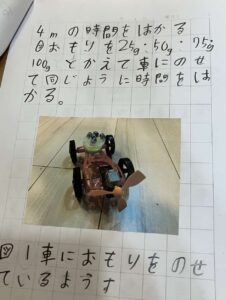 4mの時間をはかる
②おもりを25g・50g・75g
100gとかえて車にのせ
て同じように時間をは
かる。
図1車におもりをのせ
ているようす